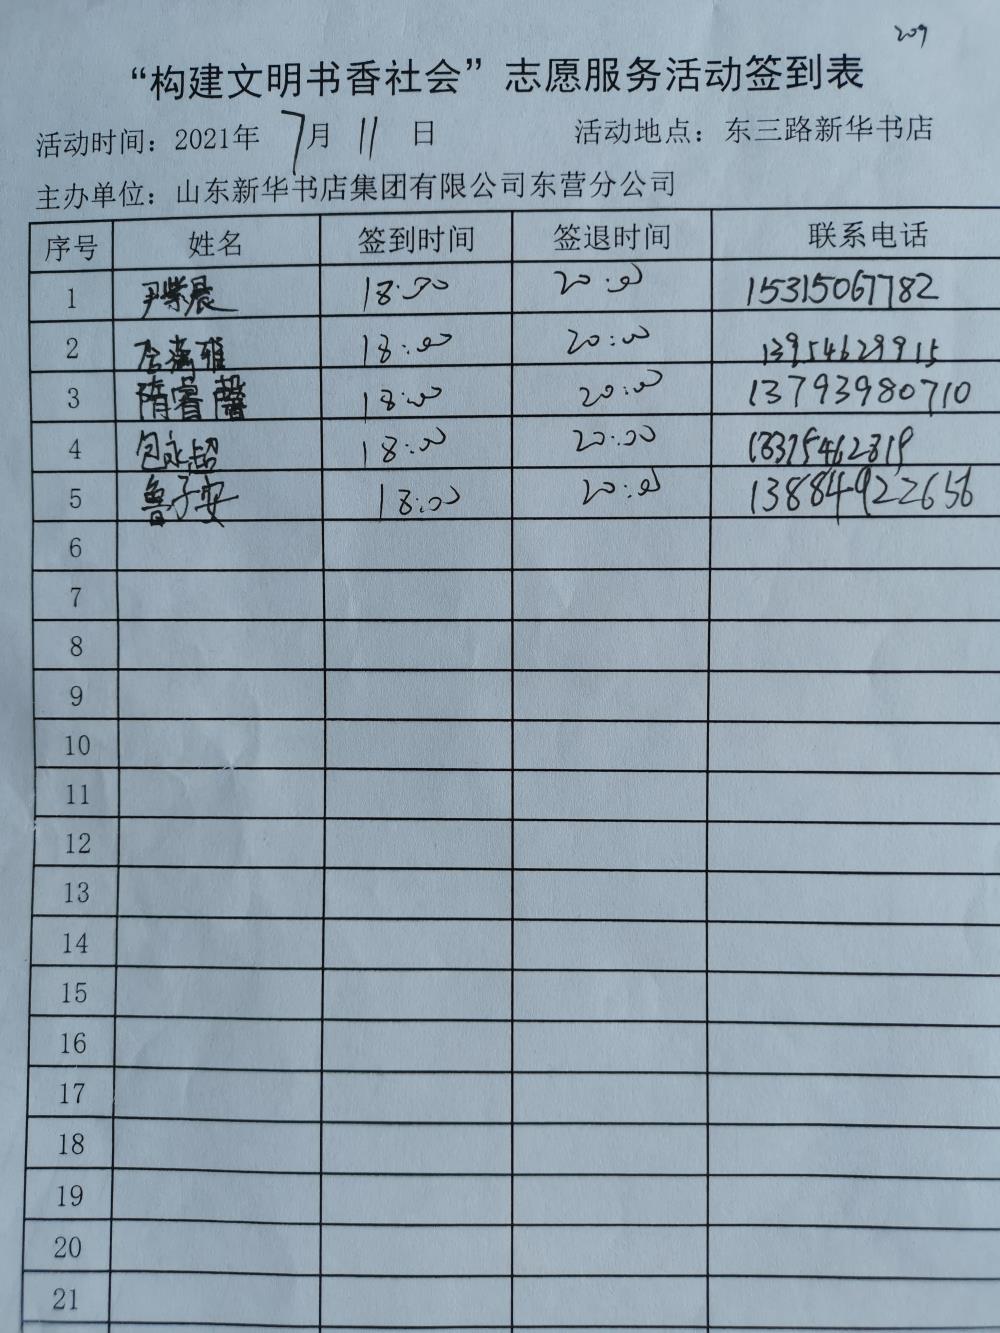 209
“构建文明书香社会”志愿服务活动签到表
活动时间：2021年 7月 11 日 活动地点：东三路新华书店
主办单位：山东新华书店集团有限公司东营分公司
序号 姓名 签到时间 签退时间 联系电话
1 尹紫晨 18:00 20:00 15315067782
2 18:00 20:00 13954629915
3 隋睿馨 18:00 20:00 13793980710
4 包永超 18:00 20:00
5 鲁子安 18:00 20:00 13884922656
6
7
8
9
10
11
12
13
14
15
16
17
18
19
20
21